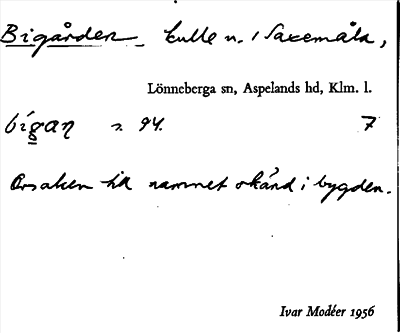 Bigården kulle n. i Saxemåla,
Lönneberga sn, Aspelands hd, Klm. l.
s. 94. 7
Orsaken till namnet okänd i bygden.
Ivar Modéer 1956